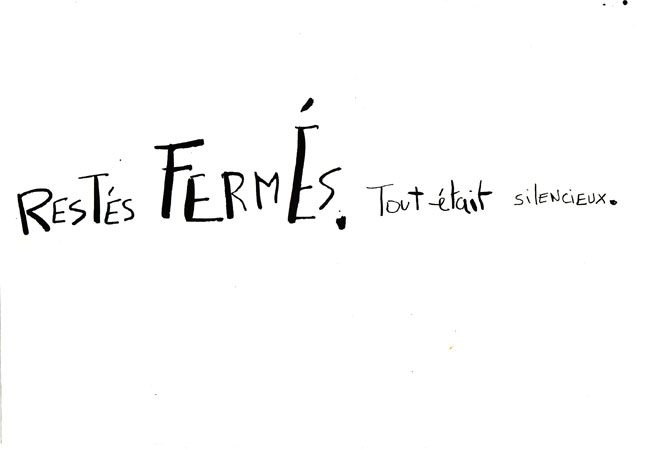 RESTÉS FERMÉS. Tout était silencieux.